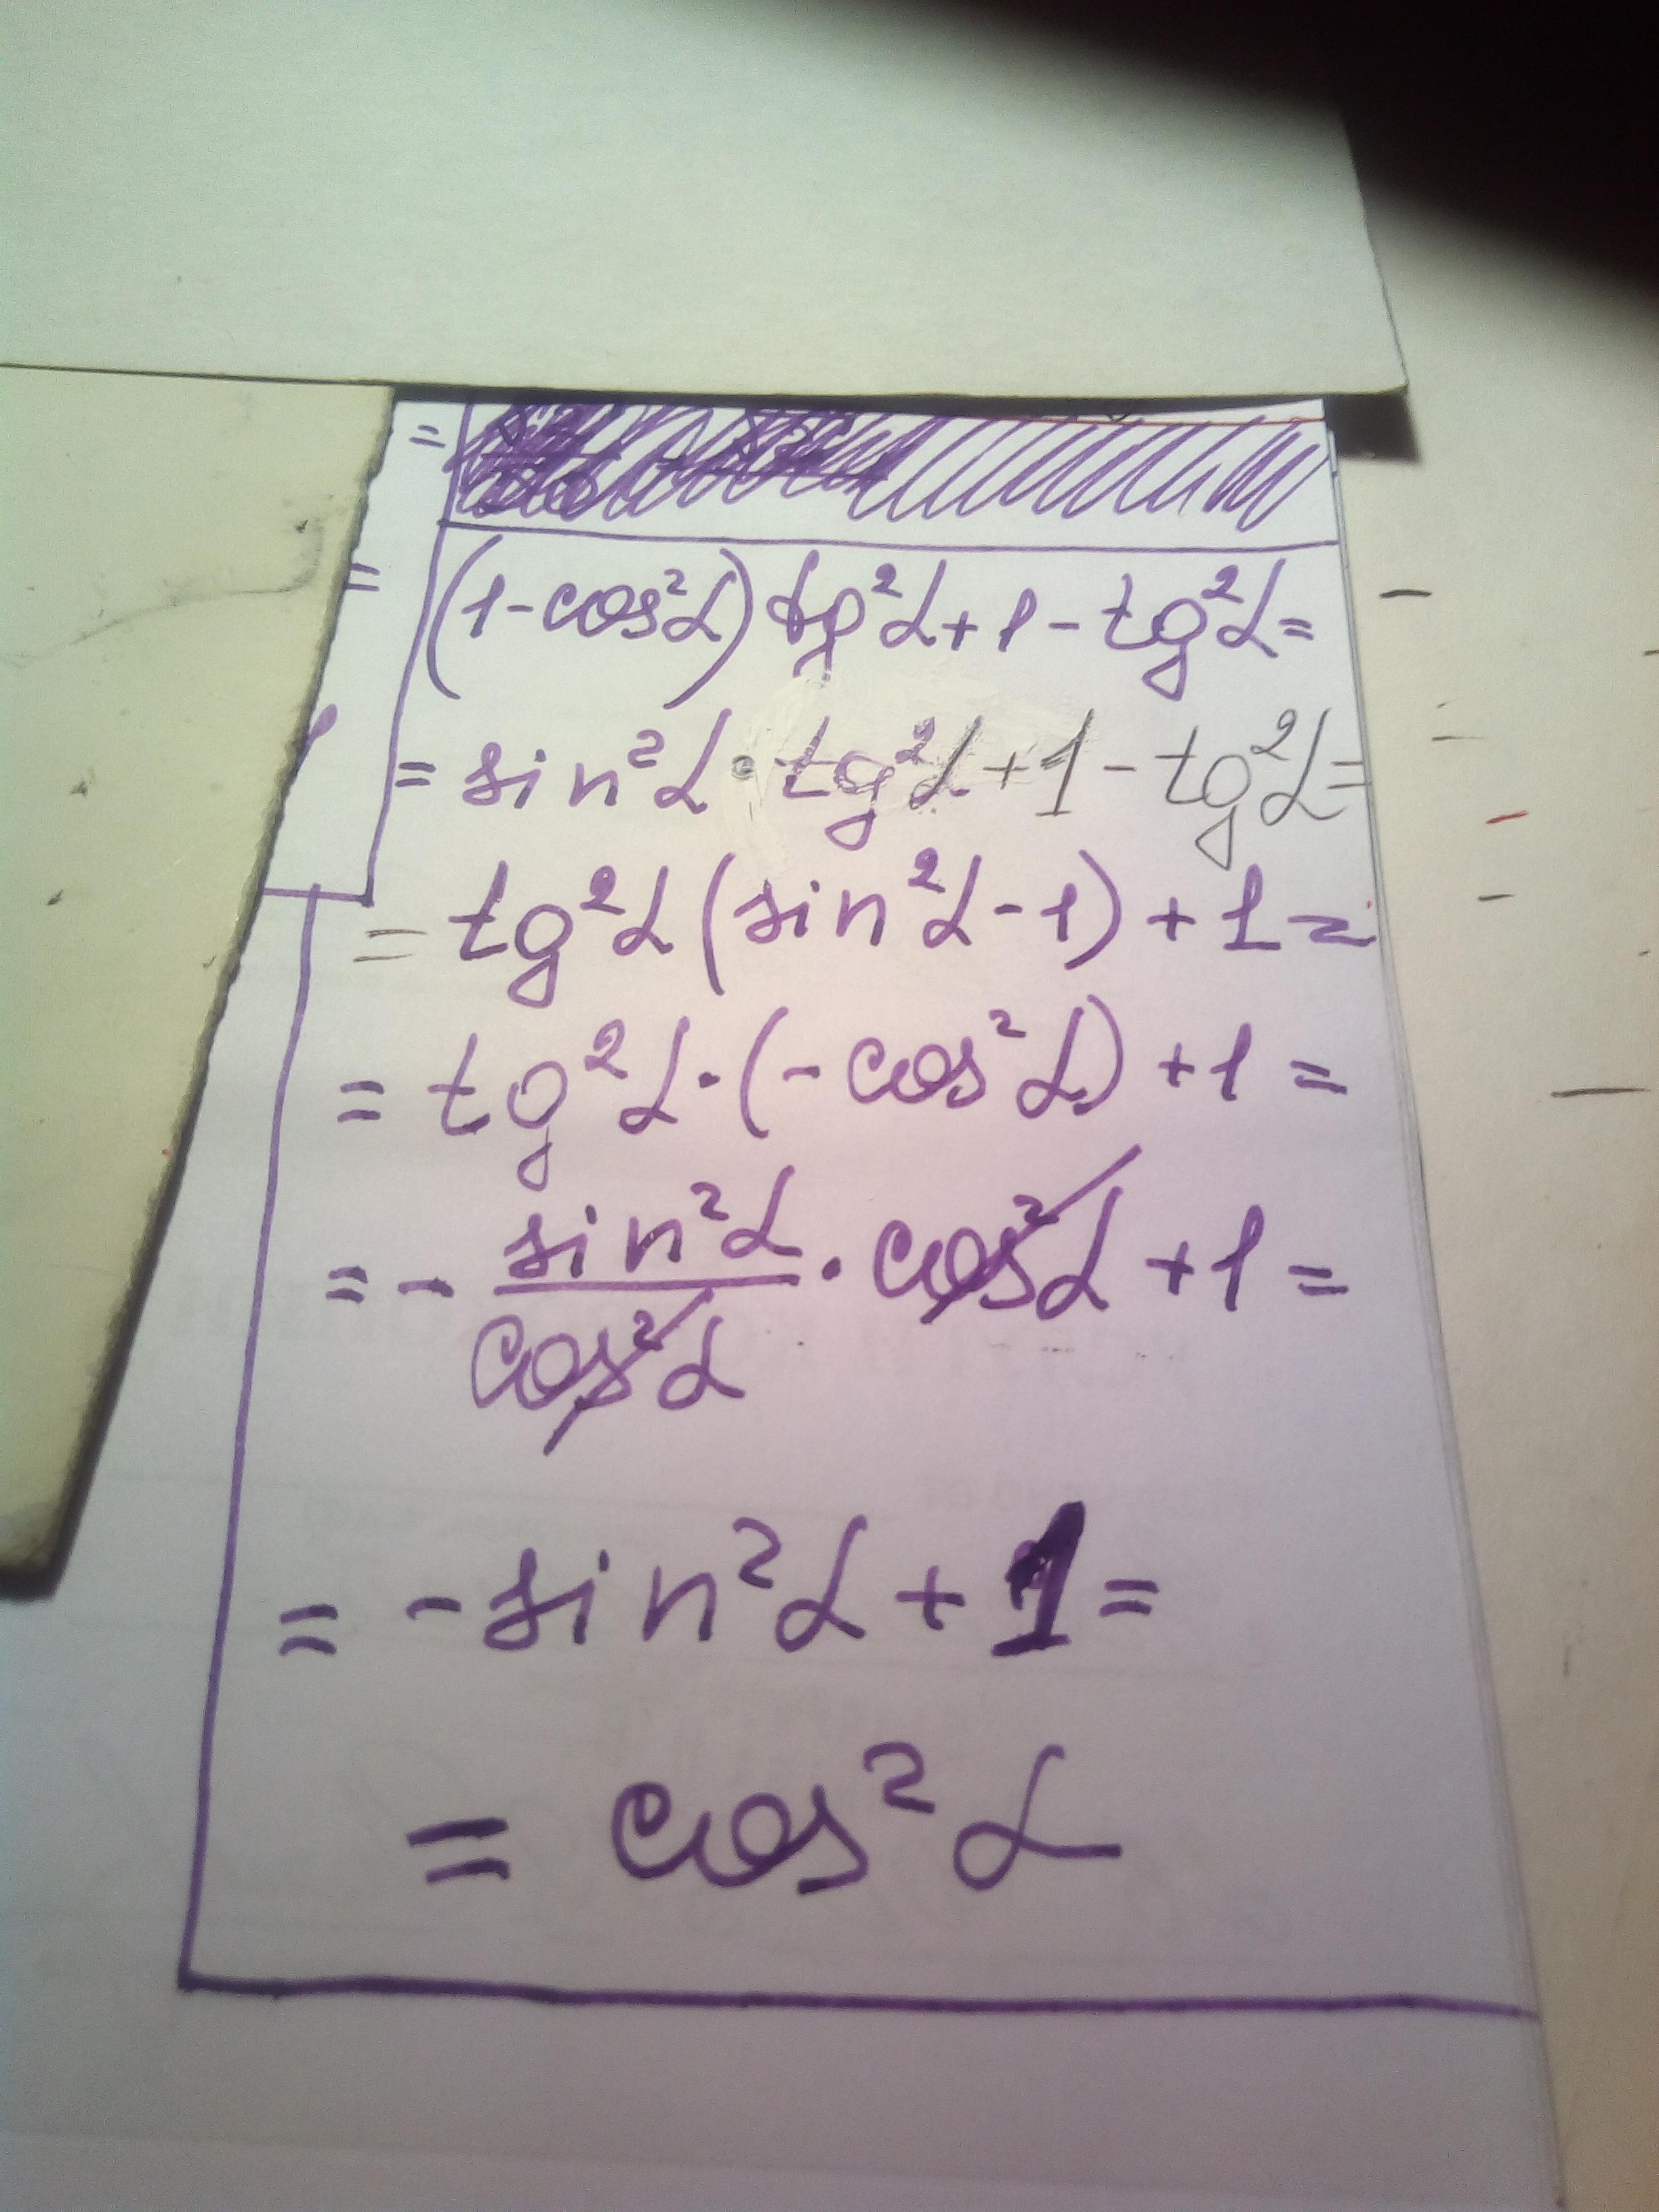 =
= (1-cos²α) tg²α + 1 - tg²α =
= sin²α · tg²α + 1 - tg²α =
= tg²α (sin²α - 1) + 1 =
= tg²α · (-cos²α) + 1 =
= - sin²α/cos²α · cos²α + 1 =
= - sin²α + 1 =
= cos²α